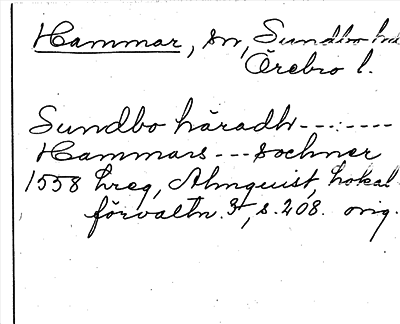 Hammar, sn, Sundbo hd
Örebro l.
Sundbo häradh --:----
Hammars --- sochner
1558 hreg, Almquist, lokal
förvaltn. 3, s. 208. orig.